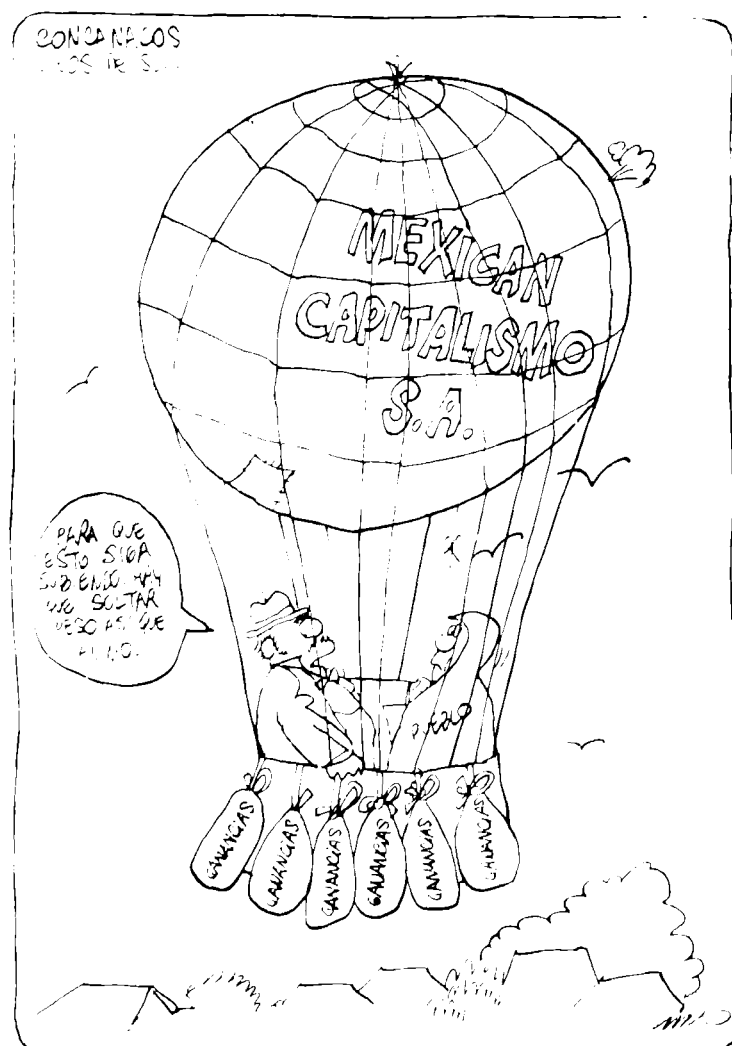 CONCANACOS
MEXICAN
CAPITALISMO
S.A.
PARA QUE
ESTO SIGA
SUBIENDO HAY
QUE SOLTAR
PESO ASI QUE
PUEBLO
GANANCIAS
GANANCIAS
GANANCIAS
GANANCIAS
GANANCIAS
GANANCIAS